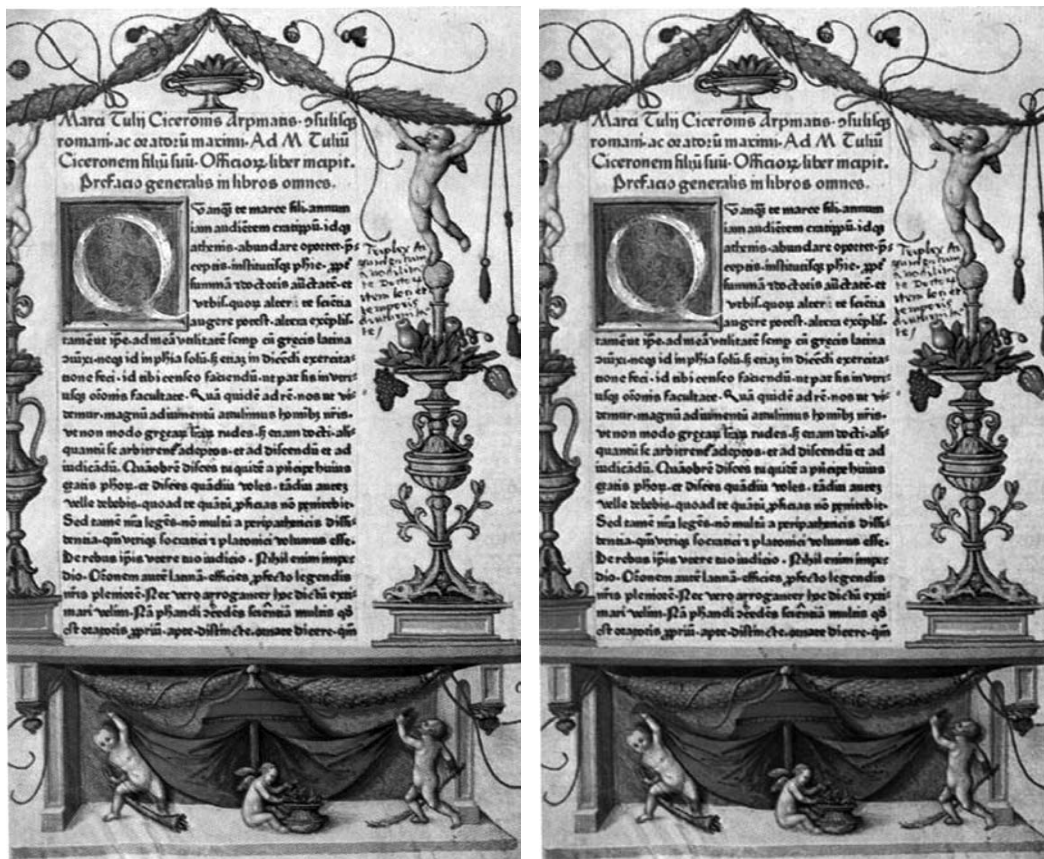 Marci Tulij Ciceronis Arpinatis · ↄsulisqꝫ
romani · ac oratorū maximi · Ad M Tuliū
Ciceronem filiū suū · Officioꝝ liber incipit.
Prefacio generalis in libros omnes.
Quanqꝫ te marce fili · annum
iam audiētem cratippū · idqꝫ
athenis · abundare oportet · p̄
ceptis · institutisqꝫ phie · ꝓpt̄
summā ⁊ doctoris auctoritatē · et
vrbis · quoꝝ alter te sciētia
augere potest · altera exēplis ·
tamē ut ip̄e · ad meā vtilitatē semp cū grecis latina
ↄiūxi · neqꝫ id in phia solū · sꝫ etiaꝫ in dicēdi exercita
tione feci · id tibi censeo faciendū · ut par sis in vtri
usqꝫ or̄onis facultate · Quā quidē ad rē · nos ut vi
demur · magnū adiumentū attulimus hoīnibꝫ nr̄is ·
vt non modo grecaꝝ lr̄aꝝ rudes · sꝫ etiam docti · ali
quantū se arbitrent adeptos · et ad discendū et ad
iudicādū · Quāobrē disces tu quidē a pn̄cipe huius
etatis phoꝝ · et disces quādiu voles · tādiu autē
velle debebis · quoad te quātū ꝓficias nō penitebit ·
Sed tamē nr̄a legēs · nō multū a peripatheticis dissi
dentia · qm̄ vtriqꝫ socratici ⁊ platonici volumus esse ·
De rebus ip̄is vtere tuo iudicio · Nihil enim impe
dio · Or̄onem autē latinā · efficies ꝓfecto legendis
nr̄is pleniorē · Nec vero arroganter hoc dictū exti
mari velim · Nā phandi ↄcedēs scientiā multis qd̄
est oratoris ꝓpriū · apte · distincte · ornate dicere · qm̄
Marci Tulij Ciceronis Arpinatis · ↄsulisqꝫ
romani · ac oratorū maximi · Ad M Tuliū
Ciceronem filiū suū · Officioꝝ liber incipit.
Prefacio generalis in libros omnes.
Quanqꝫ te marce fili · annum
iam audiētem cratippū · idqꝫ
athenis · abundare oportet · p̄
ceptis · institutisqꝫ phie · ꝓpt̄
summā ⁊ doctoris auctoritatē · et
vrbis · quoꝝ alter te sciētia
augere potest · altera exēplis ·
tamē ut ip̄e · ad meā vtilitatē semp cū grecis latina
ↄiūxi · neqꝫ id in phia solū · sꝫ etiaꝫ in dicēdi exercita
tione feci · id tibi censeo faciendū · ut par sis in vtri
usqꝫ or̄onis facultate · Quā quidē ad rē · nos ut vi
demur · magnū adiumentū attulimus hoīnibꝫ nr̄is ·
vt non modo grecaꝝ lr̄aꝝ rudes · sꝫ etiam docti · ali
quantū se arbitrent adeptos · et ad discendū et ad
iudicādū · Quāobrē disces tu quidē a pn̄cipe huius
etatis phoꝝ · et disces quādiu voles · tādiu autē
velle debebis · quoad te quātū ꝓficias nō penitebit ·
Sed tamē nr̄a legēs · nō multū a peripatheticis dissi
dentia · qm̄ vtriqꝫ socratici ⁊ platonici volumus esse ·
De rebus ip̄is vtere tuo iudicio · Nihil enim impe
dio · Or̄onem autē latinā · efficies ꝓfecto legendis
nr̄is pleniorē · Nec vero arroganter hoc dictū exti
mari velim · Nā phandi ↄcedēs scientiā multis qd̄
est oratoris ꝓpriū · apte · distincte · ornate dicere · qm̄